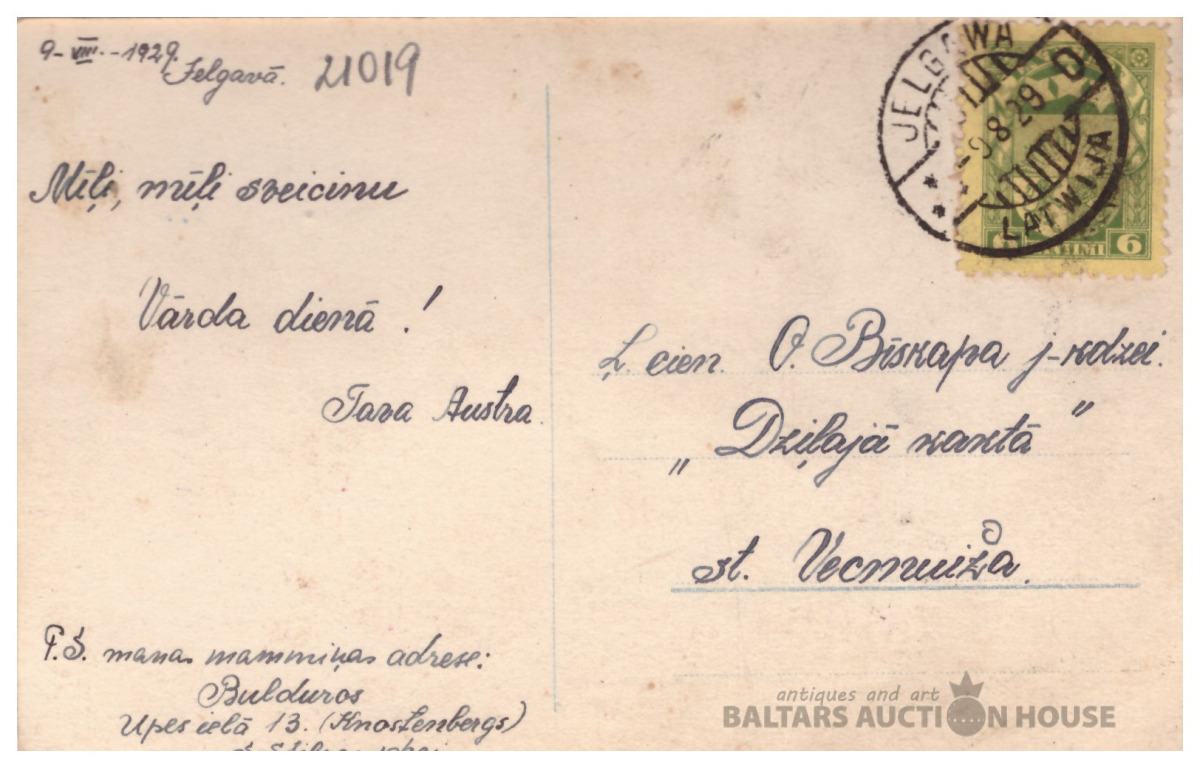 9-VIII.-1929.
Jelgavā.
21019
Mīļi, mīļi sveicinu
Vārda dienā !
Tava Austra.
P.S. manas mammiņas adrese:
Bulduros
Upes ielā 13. (Knostenbergs)
JELGAWA
9 8 29
LATWIJA
6 6
Ļ. cien. O. Bīskapa j-kdzei.
„Dziļajā kaktā"
st. Vecmuiža.
antiques and art
BALTARS AUCTION HOUSE